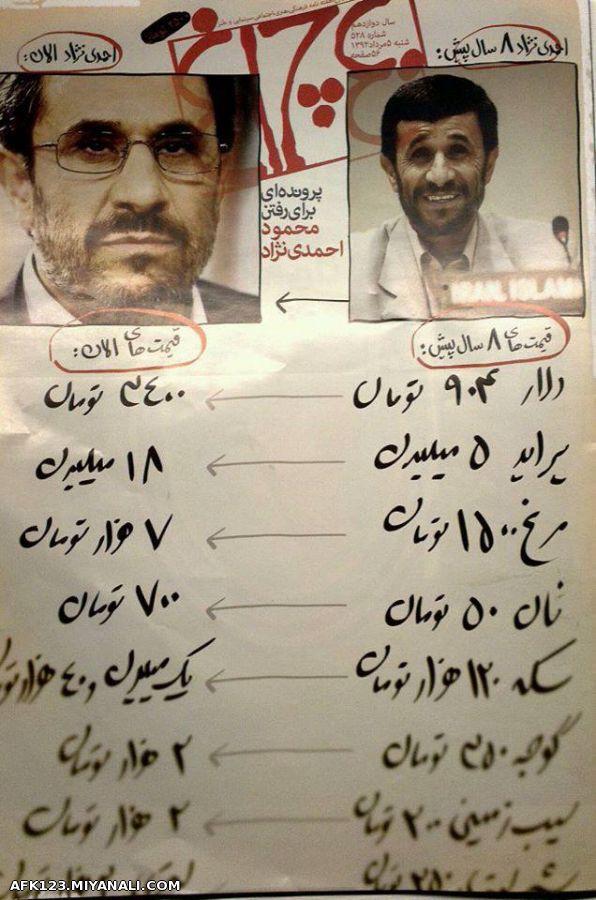 سال دوازدهم
شماره ۵۲۸
شنبه ۵ مرداد ۱۳۹۲
۵۶ صفحه
۲۵۰۰ تومان
چلچراغ
احمدی نژاد ۸ سال پیش:
احمدی نژاد الان:
پرونده‌ای
برای رفتن
محمود
احمدی‌نژاد
IRAN, ISLAM
قیمت های ۸ سال پیش:
قیمت های الان:
دلار ۹۰۴ تومان
۳۴۰۰ تومان
پراید ۵ میلیون
۱۸ میلیون
مرغ ۱۵۰۰ تومان
۷ هزار تومان
نان ۵۰ تومان
۷۰۰ تومان
سکه ۱۲۰ هزار تومان
یک میلیون و ۴۰ هزار تو
گوجه ۳۵۰ تومان
۲ هزار تومان
سیب زمینی ۲۰۰ تومان
۲ هزار تومان
AFK123.MIYANALI.COM